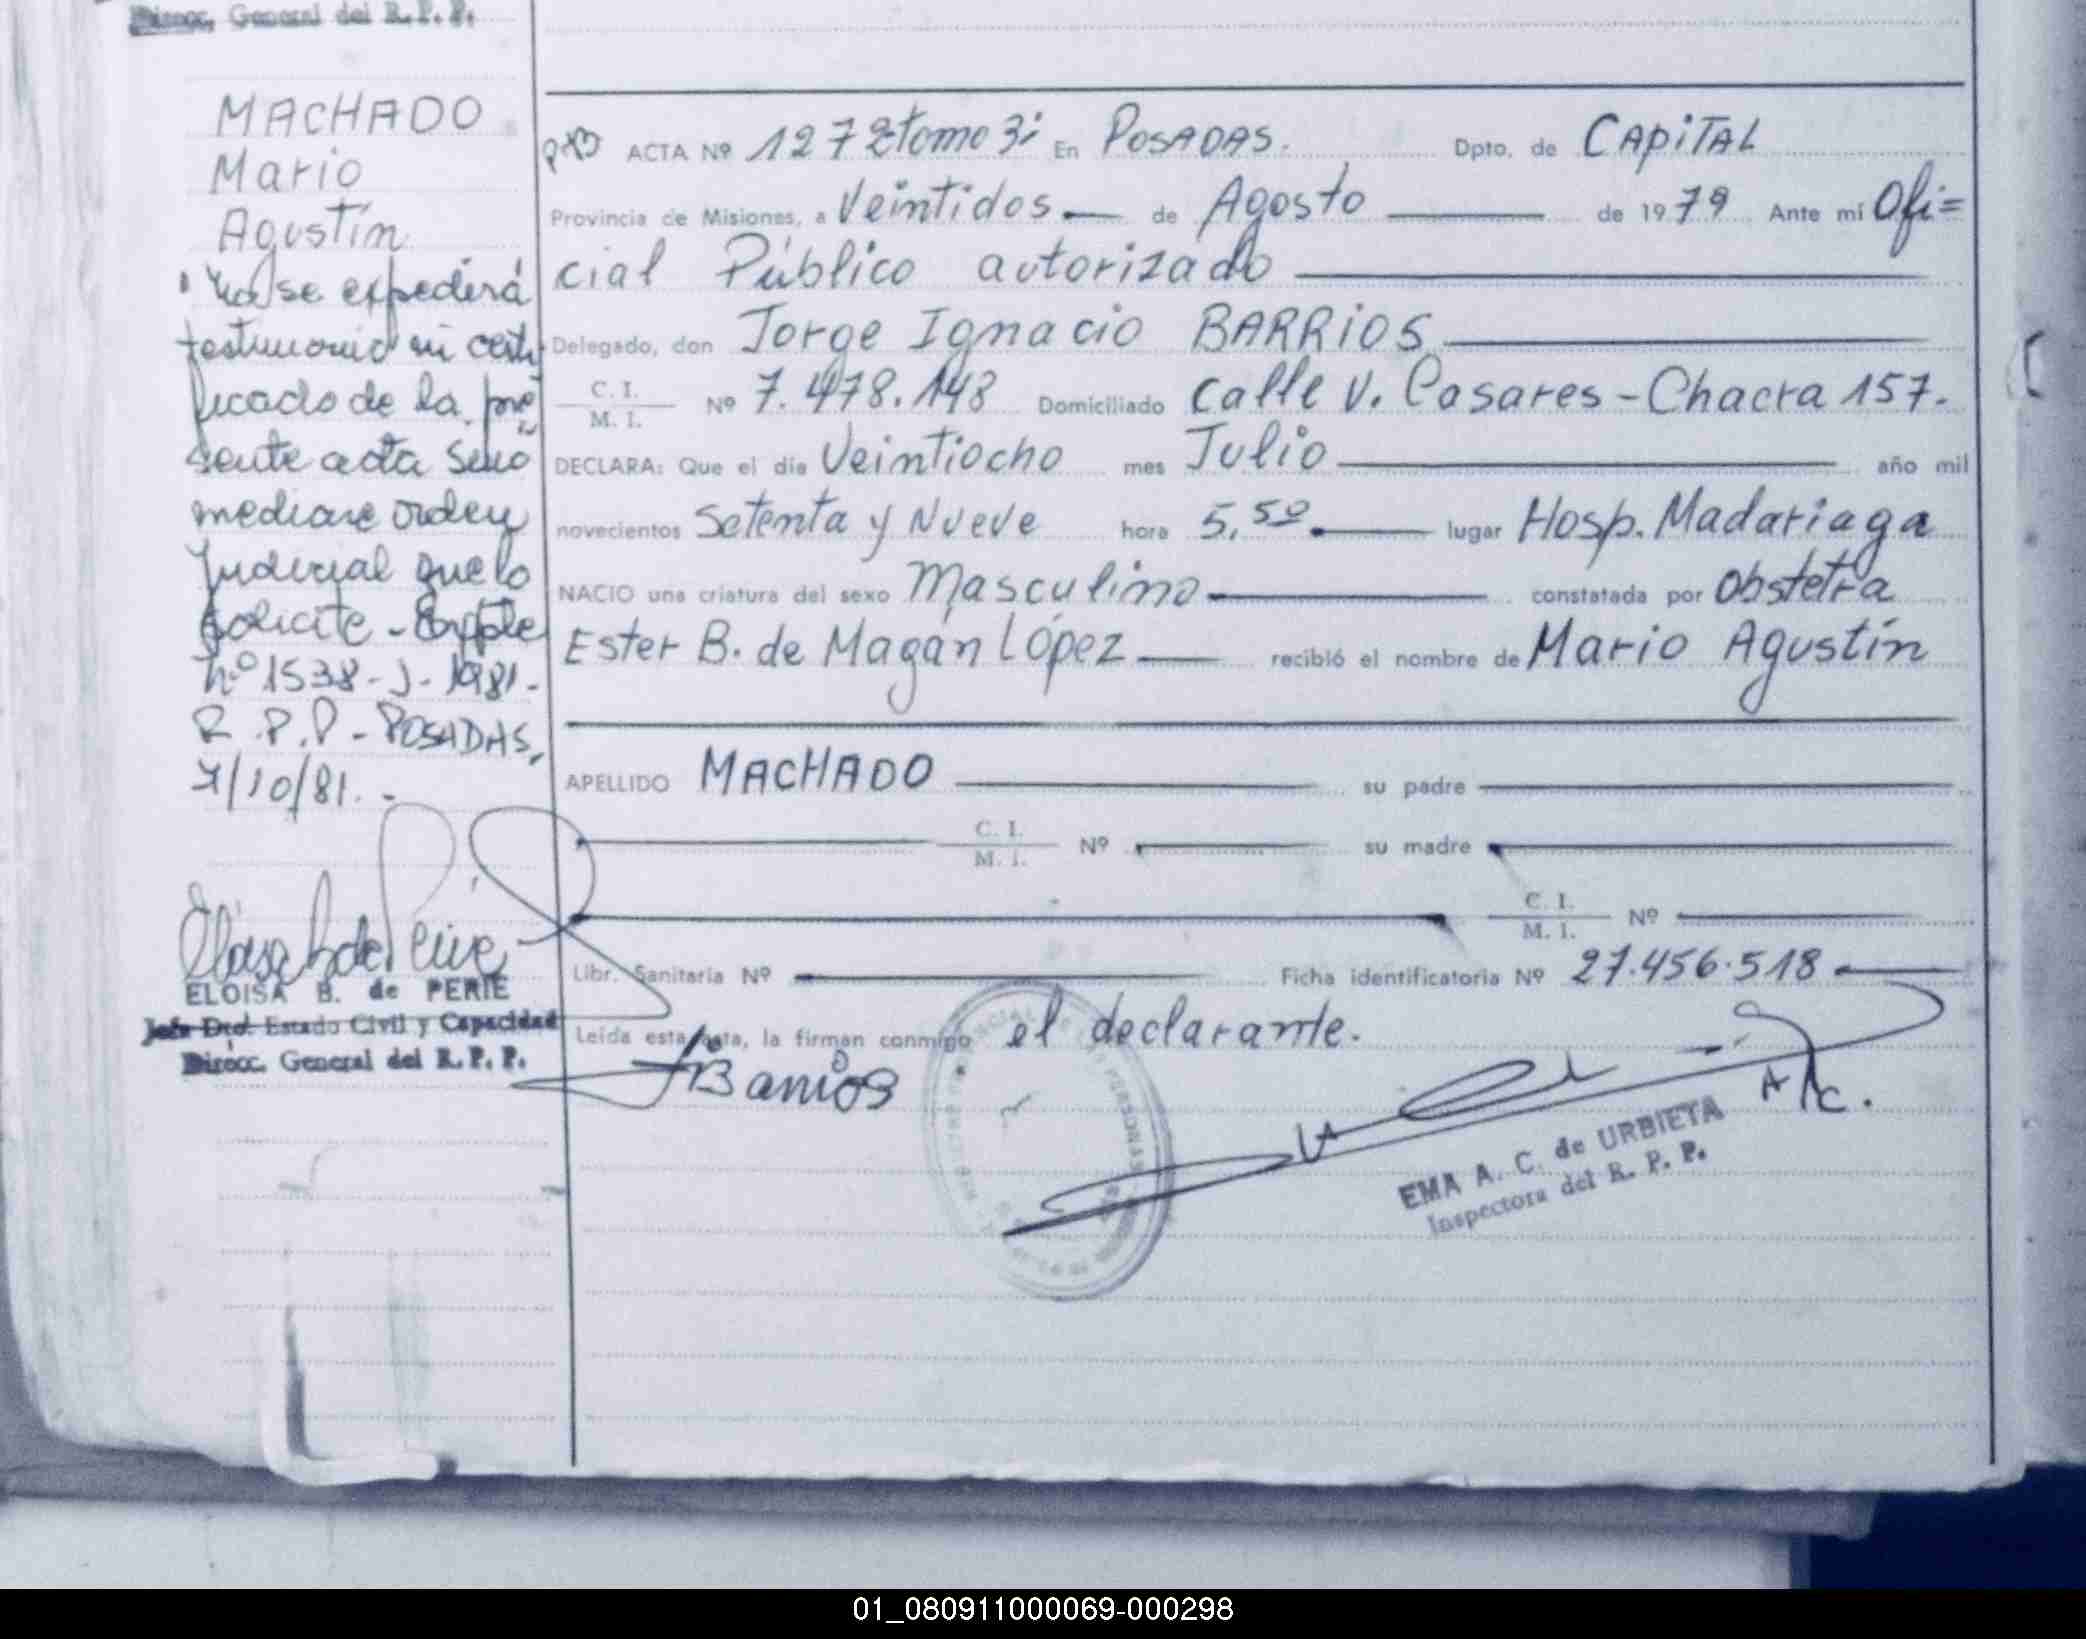 Direcc. General del R. P. P.
MACHADO
Mario
Agustín
No se expedirá
testimonio ni certi
ficado de la pre
sente acta sino
mediare orden
Judicial que lo
solicite - Expte
nº 1538-J-1981.-
R.P.P - POSADAS,
7/10/81.-
ELOISA B. de PERIE
Jefa Dto. Estado Civil y Capacidad
Direcc. General del R. P. P.
ACTA Nº 1272 tomo 3: En POSADAS. Dpto. de CAPITAL
Provincia de Misiones, a Veintidos de Agosto de 1979 Ante mí Ofi=
cial Público autorizado
Delegado, don Jorge Ignacio BARRIOS
C. I.
M. I. Nº 7.478.148 Domiciliado calle V. Casares - Chacra 157.
DECLARA: Que el día Veintiocho mes Julio año mil
novecientos Setenta y Nueve hora 5,50 lugar Hosp. Madariaga
NACIO una criatura del sexo Masculino constatada por Obstetra
Ester B. de Magán López recibió el nombre de Mario Agustín
APELLIDO MACHADO su padre
C. I.
M. I. Nº su madre
C. I.
M. I. Nº
Libr. Sanitaria Nº Ficha identificatoria Nº 27.456.518
Leída esta acta, la firman conmigo el declarante.
Barrios
A/C.
EMA A. C. de URBIETA
Inspectora del R. P. P.
01_080911000069-000298